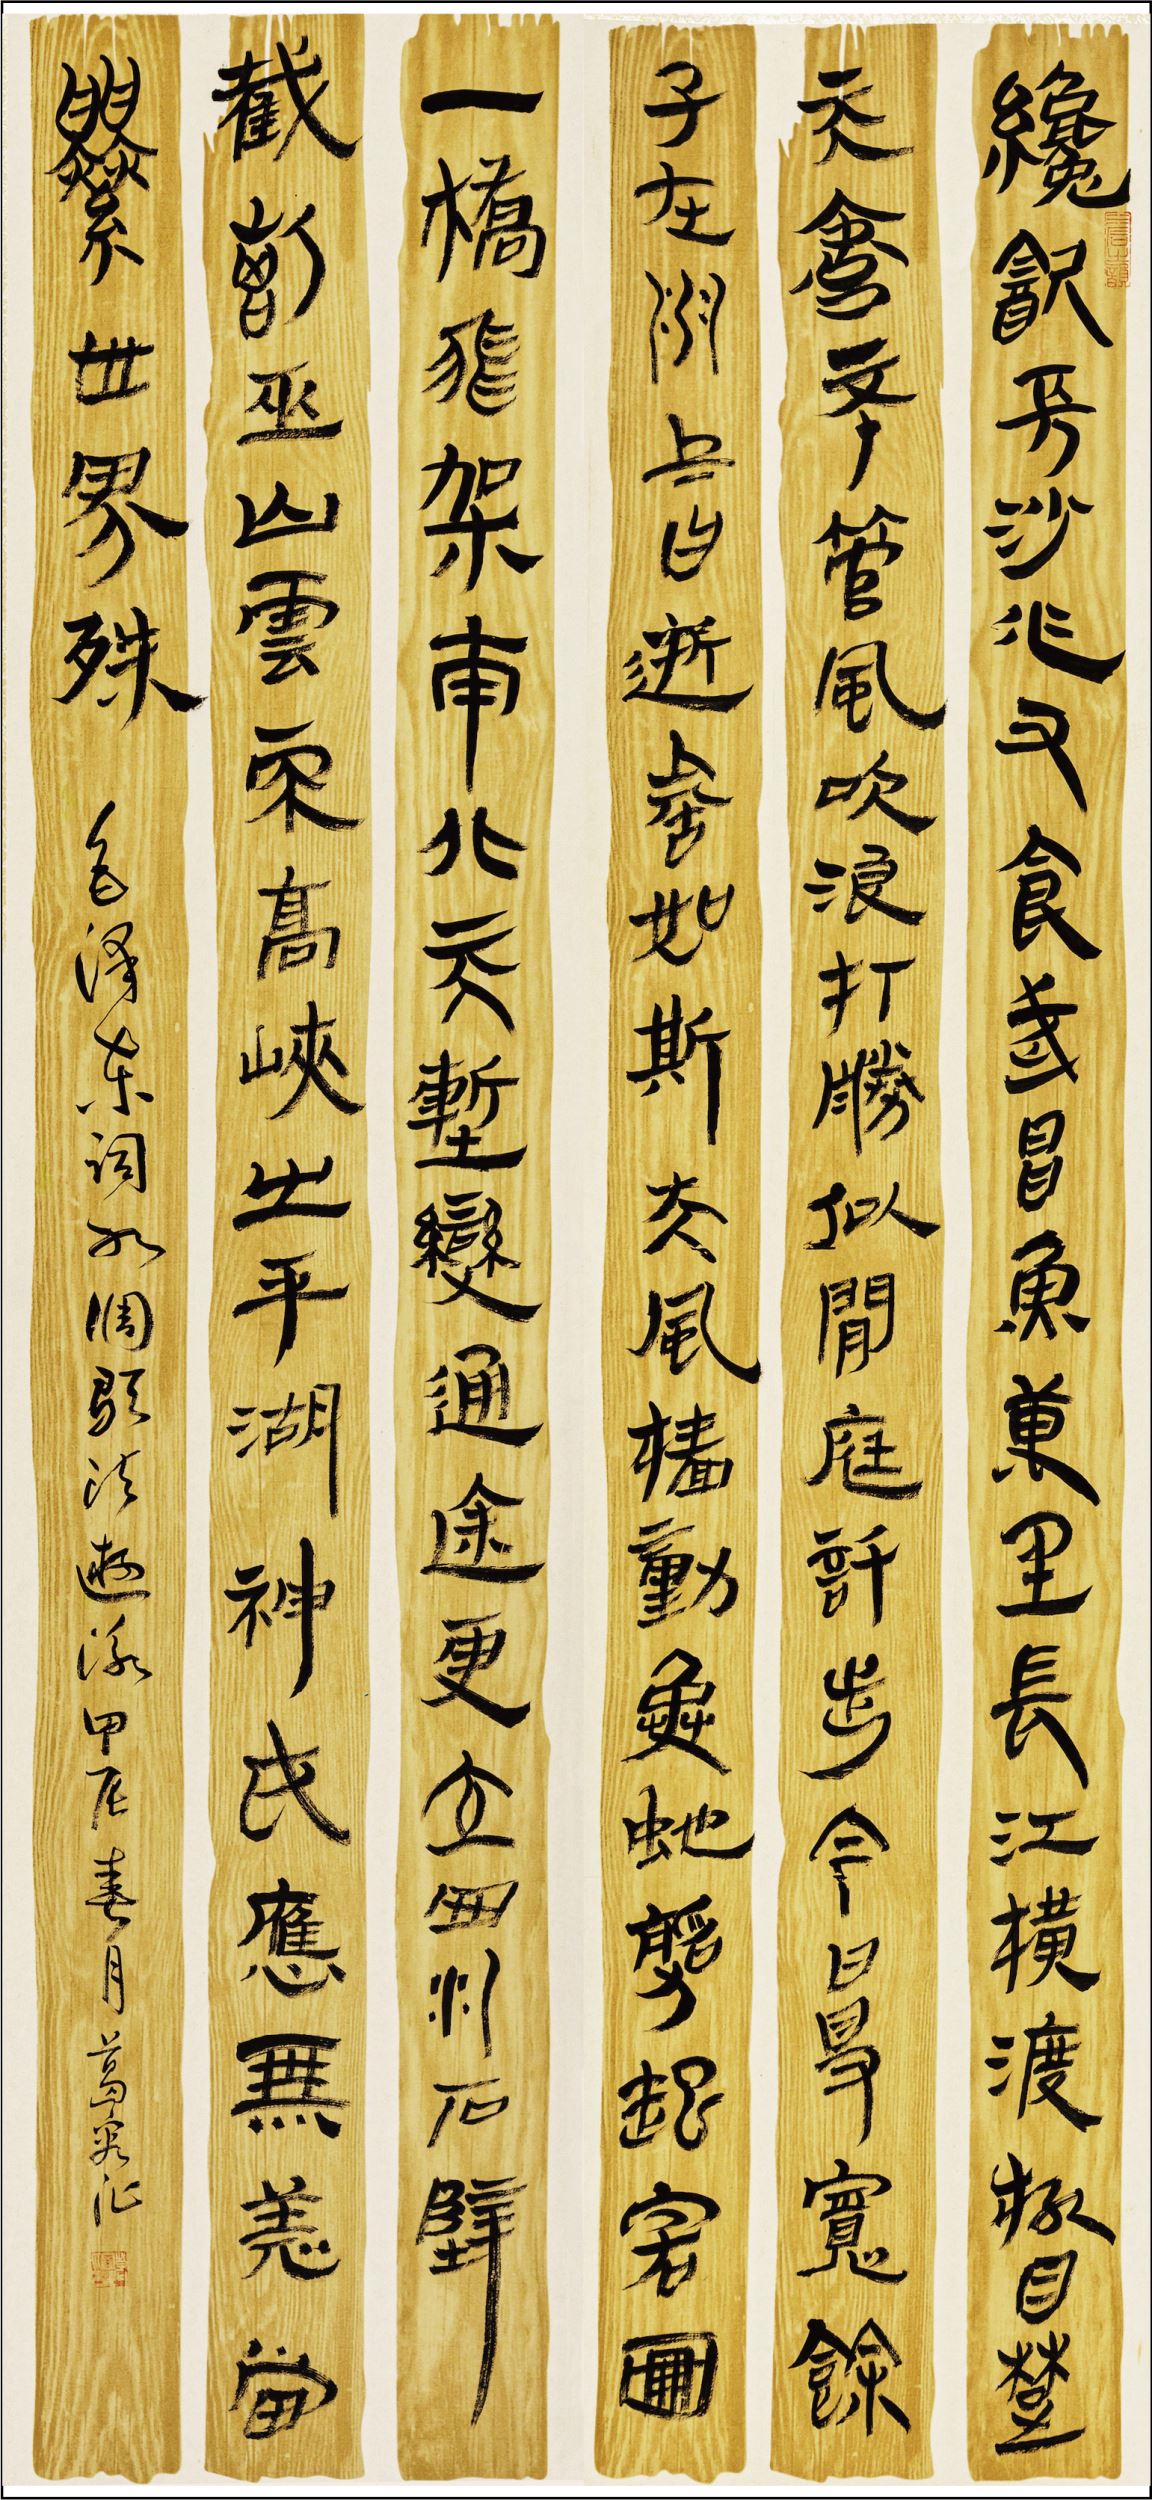 纔飲長沙水又食武昌魚萬里長江橫渡極目楚
天舒不管風吹浪打勝似閒庭信步今日得寬餘
子在川上曰逝者如斯夫風檣動龜蛇靜起宏圖
一橋飛架南北天塹變通途更立西江石壁
截斷巫山雲雨高峽出平湖神女應無恙當
驚世界殊 毛泽东词水調歌头遊泳甲辰春月葛